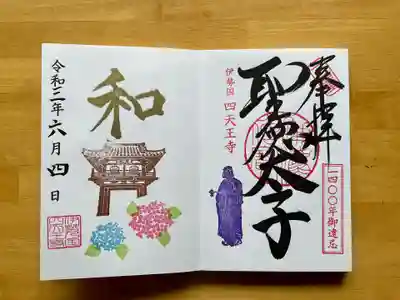 奉拝
聖徳太子
伊勢国 四天王寺
一四〇〇年御遠忌
和
令和三年六月四日